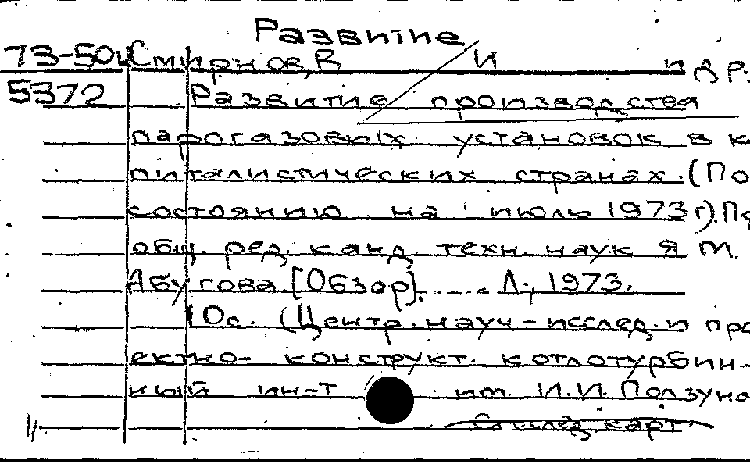 Развитие
73-50 Смирнов, В И и др.
5372 Развитие производства
парогазовых установок в к
питалистических странах. (По
состоянию на июль 1973 г). По
общ. ред. канд. техн. наук Я М.
Абугова [Обзор]. Л., 1973.
10с. (Центр. науч-исслед. и про
ектно- конструкт. котлотурбин-
ный ин-т им. И.И. Ползуно
След карт